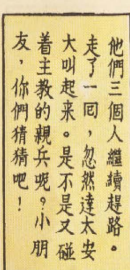 他們三個人繼續趕路。
走了一囘，忽然達太安
大叫起來。是不是又碰
着主教的親兵呢？小朋
友，你們猜猜吧！